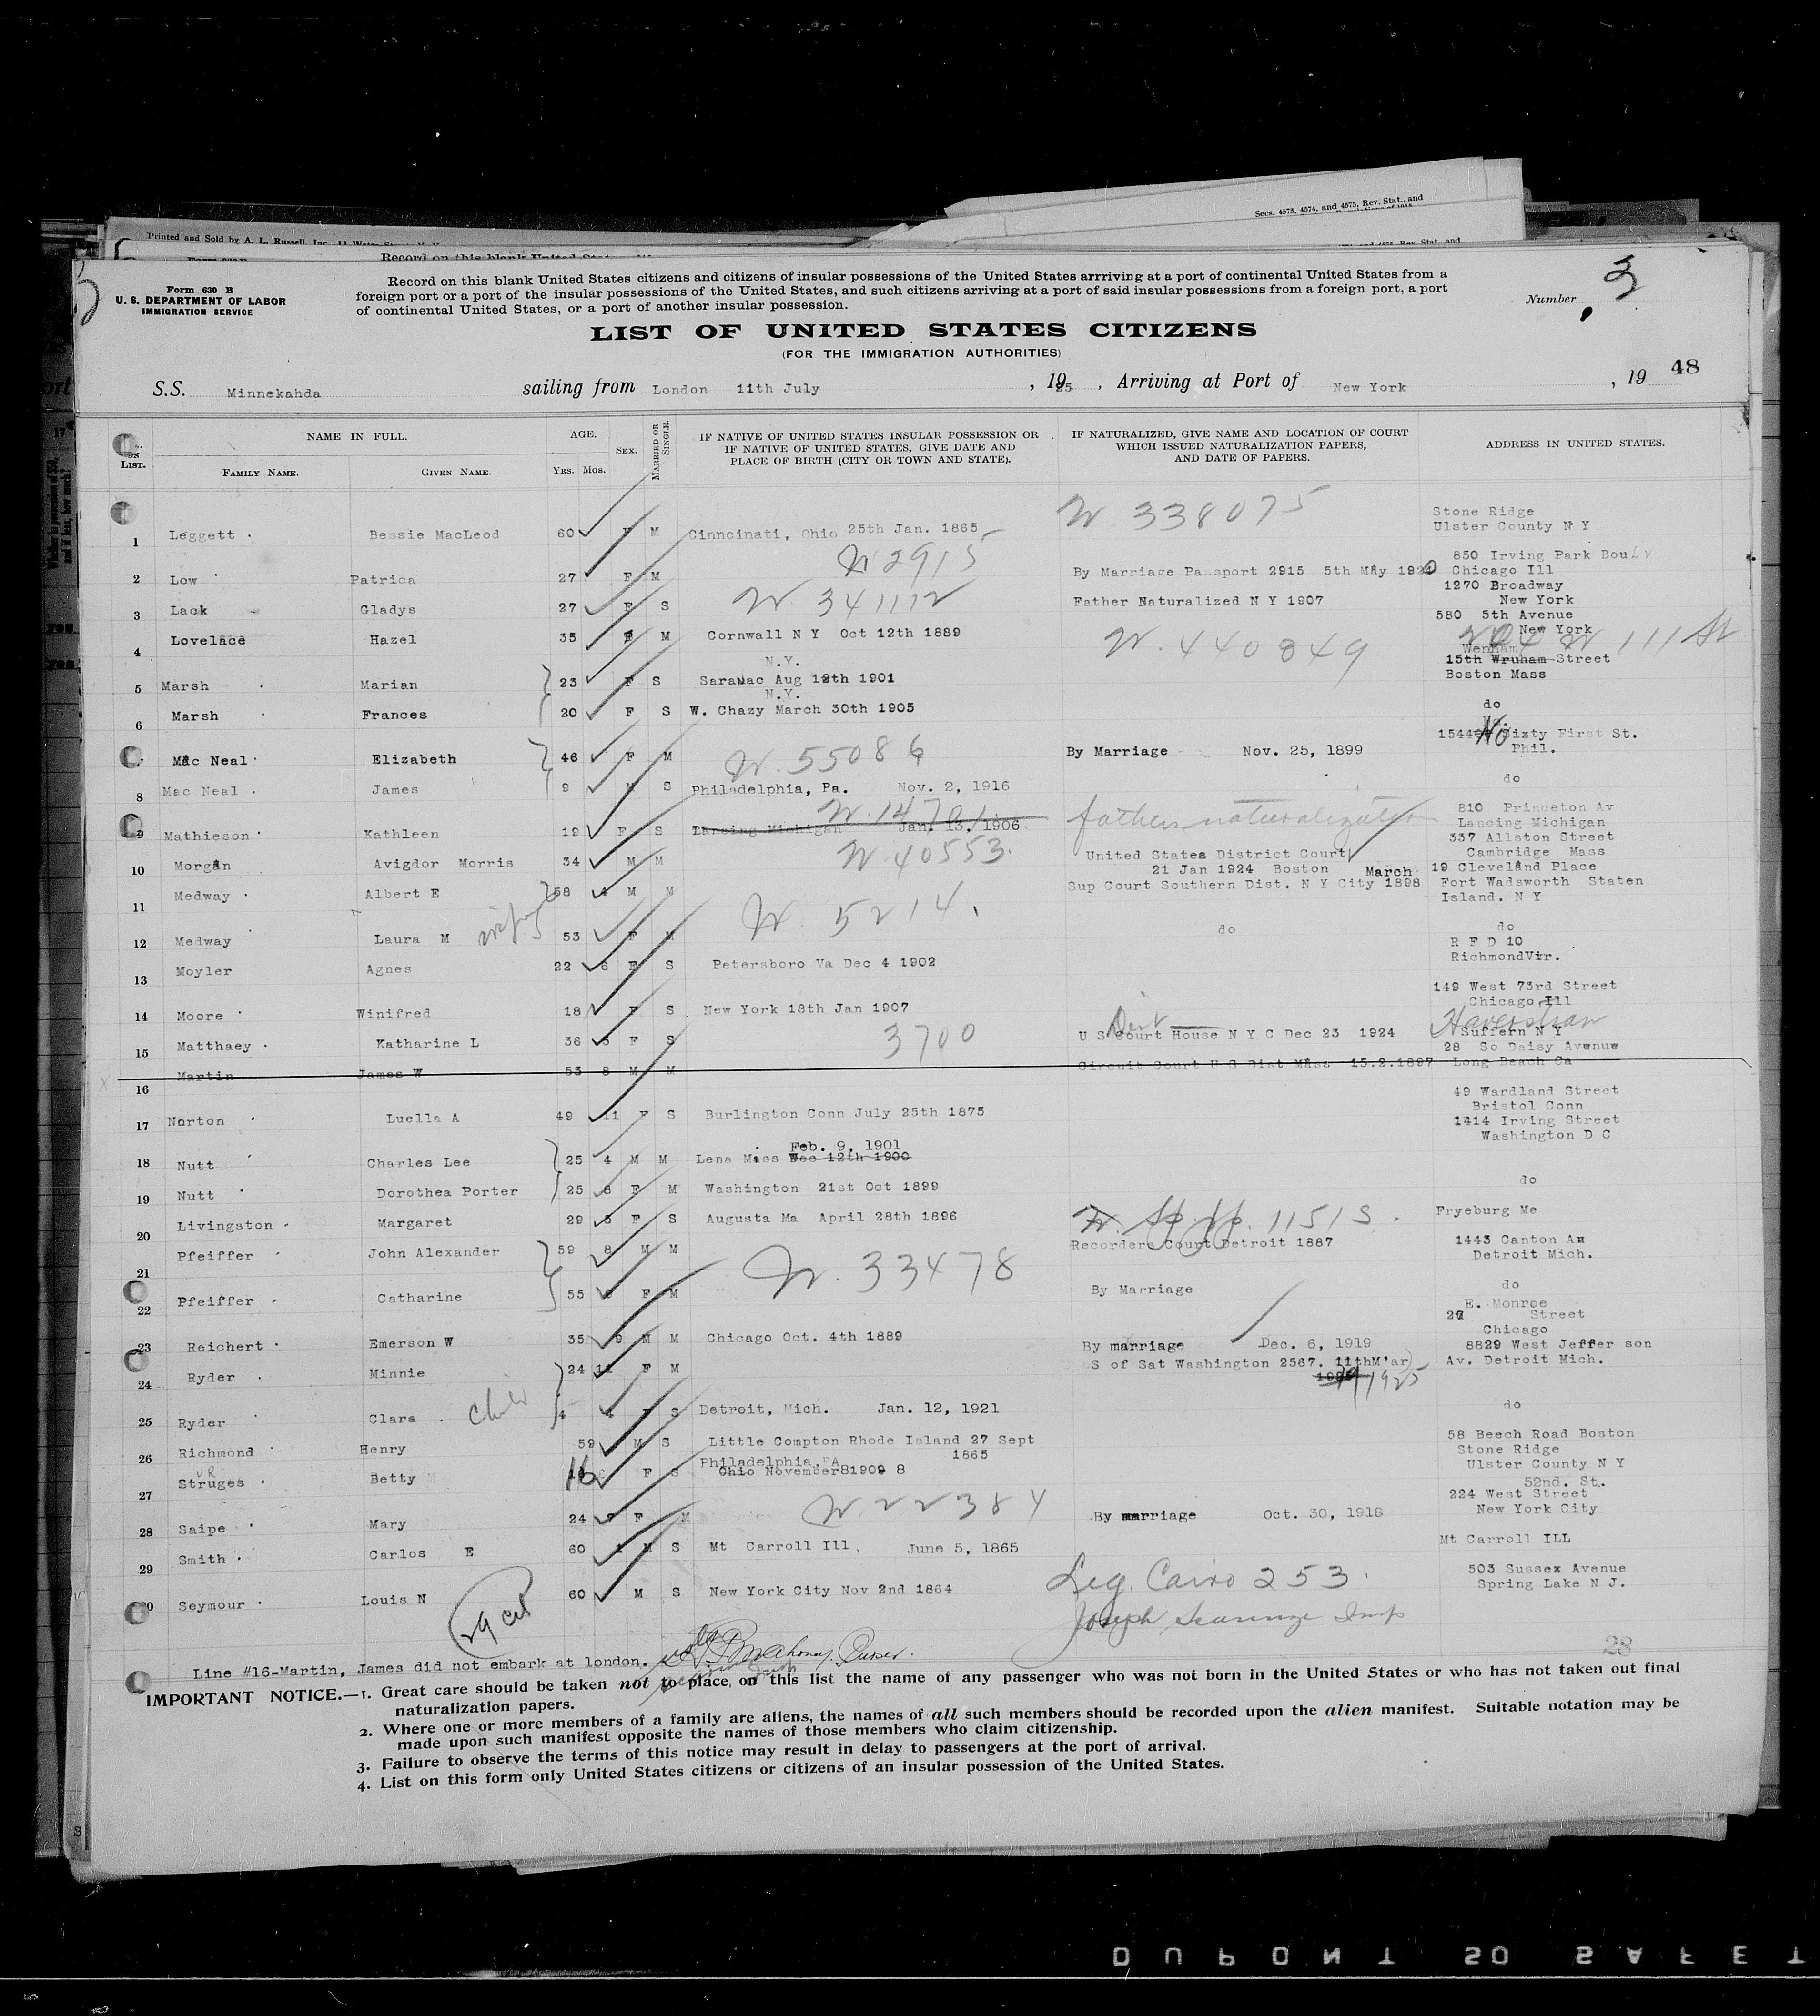 Secs. 4573, 4574, and 4575, Rev. Stat., and
Printed and Sold by A. L. Russell, Inc.
Record on this blank United
Form 630 B
U. S. DEPARTMENT OF LABOR
IMMIGRATION SERVICE
Record on this blank United States citizens and citizens of insular possessions of the United States arrriving at a port of continental United States from a
foreign port or a port of the insular possessions of the United States, and such citizens arriving at a port of said insular possessions from a foreign port, a port
of continental United States, or a port of another insular possession.
Number 3
LIST OF UNITED STATES CITIZENS
(FOR THE IMMIGRATION AUTHORITIES)
48
S.S. Minnekahda sailing from London 11th July , 1925 , Arriving at Port of New York , 19
ON LIST.
NAME IN FULL.
FAMILY NAME. GIVEN NAME.
AGE.
YRS. MOS.
SEX.
MARRIED OR SINGLE.
IF NATIVE OF UNITED STATES INSULAR POSSESSION OR
IF NATIVE OF UNITED STATES, GIVE DATE AND
PLACE OF BIRTH (CITY OR TOWN AND STATE).
IF NATURALIZED, GIVE NAME AND LOCATION OF COURT
WHICH ISSUED NATURALIZATION PAPERS,
AND DATE OF PAPERS.
ADDRESS IN UNITED STATES.
W. 338075
Stone Ridge
Ulster County N Y
1 Leggett Bessie MacLeod 60 F M Cinncinati, Ohio 25th Jan. 1865
N 2915
850 Irving Park Boulv
2 Low Patrica 27 F M By Marriage Passport 2915 5th May 1920 Chicago Ill
1270 Broadway
New York
3 Lack Gladys 27 F S W. 341112 Father Naturalized N Y 1907
580 5th Avenue
New York
4 Lovelace Hazel 35 F M Cornwall N Y Oct 12th 1889 W. 440849
W 111 St
Wenham
15th Wruham Street
Boston Mass
N.Y.
5 Marsh Marian 23 F S Saranac Aug 12th 1901
N.Y.
6 Marsh Frances 20 F S W. Chazy March 30th 1905 do
No
Sixty First St.
Phil.
Mac Neal Elizabeth 46 F M W. 55086 By Marriage Nov. 25, 1899
8 Mac Neal James 9 M S Philadelphia, Pa. Nov. 2, 1916 do
W. 14701
810 Princeton Av
Lancing Michigan
9 Mathieson Kathleen 19 F S Lancing Michigan Jan. 13, 1906 fathers naturalization
337 Allston Street
Cambridge Mass
10 Morgan Avigdor Morris 34 M M W 40553. United States District Court
21 Jan 1924 Boston
19 Cleveland Place
Fort Wadsworth Staten
Island. N Y
11 Medway Albert E 58 4 M M Sup Court Southern Dist. N Y City March 1898
W. 5214.
12 Medway Laura M wife 53 F M do do
R F D 10
Richmond Vir.
13 Moyler Agnes 22 6 F S Petersboro Va Dec 4 1902
149 West 73rd Street
Chicago Ill
14 Moore Winifred 18 F S New York 18th Jan 1907
Haverstraw
Suffern N Y
15 Matthaey Katharine L 36 5 F S 3700 U S Dist Court House N Y C Dec 23 1924
28 So Daisy Avwnuw
Long Beach Ca
16 Martin James W 53 8 M M Circuit Court U S Dist Mass 15.2.1897
49 Wardland Street
Bristol Conn
17 Norton Luella A 49 11 F S Burlington Conn July 25th 1875
1414 Irving Street
Washington D C
Feb. 9, 1901
18 Nutt Charles Lee 25 4 M M Lena Mass Dec 12th 1900
19 Nutt Dorothea Porter 25 8 F M Washington 21st Oct 1899 do
20 Livingston Margaret 29 5 F S Augusta Ma April 28th 1896 11513. Fryeburg Me
21 Pfeiffer John Alexander 59 8 M M Recorders Court Detroit 1887
1443 Canton Av
Detroit Mich.
W. 33478
22 Pfeiffer Catharine 55 F M By Marriage do
E. Monroe
Street
Chicago
23 Reichert Emerson W 35 9 M M Chicago Oct. 4th 1889
By marriage Dec. 6, 1919
24 Ryder Minnie 24 11 F M S of Sat Washington 2567. 11thM'ar 1925
8829 West Jeffer son
Av. Detroit Mich.
25 Ryder Clara Child 4 F S Detroit, Mich. Jan. 12, 1921 do
26 Richmond Henry 59 M S Little Compton Rhode Island 27 Sept
1865
58 Beech Road Boston
Philadelphia, PA
27 Struges UR Betty 16 F S Ohio November81909 8
Stone Ridge
Ulster County N Y
52nd. St.
224 West Street
New York City
28 Saipe Mary 24 F M W 22384 By marriage Oct. 30, 1918
29 Smith Carlos E 60 1 M S Mt Carroll Ill, June 5, 1865 Mt Carroll ILL
30 Seymour Louis N 60 M S New York City Nov 2nd 1864
503 Sussex Avenue
Spring Lake N J.
Leg. Cairo 253.
Joseph Insp
28
29 cit
Line #16-Martin, James did not embark at london. Mahoney Purser.
IMPORTANT NOTICE.—1. Great care should be taken not to place on this list the name of any passenger who was not born in the United States or who has not taken out final
naturalization papers.
2. Where one or more members of a family are aliens, the names of all such members should be recorded upon the alien manifest. Suitable notation may be
made upon such manifest opposite the names of those members who claim citizenship.
3. Failure to observe the terms of this notice may result in delay to passengers at the port of arrival.
4. List on this form only United States citizens or citizens of an insular possession of the United States.
DUPONT SO SAFET